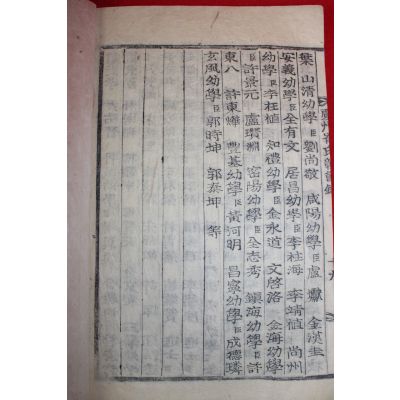 葉 山清幼學臣劉尚敬 咸陽幼學臣盧 金漢圭
安義幼學臣全有文 居昌幼學臣李柱海 李靖植 尚州
幼學臣李枉植 知禮幼學臣金永道 文啓洛 金海幼學
臣許景元 盧瓚淵 密陽幼學臣全志秀 鎭海幼學臣許
東八 許東燁 豊基幼學臣黃河明 昌寧幼學臣成德璘
玄風幼學臣郭時坤 郭泰坤 等